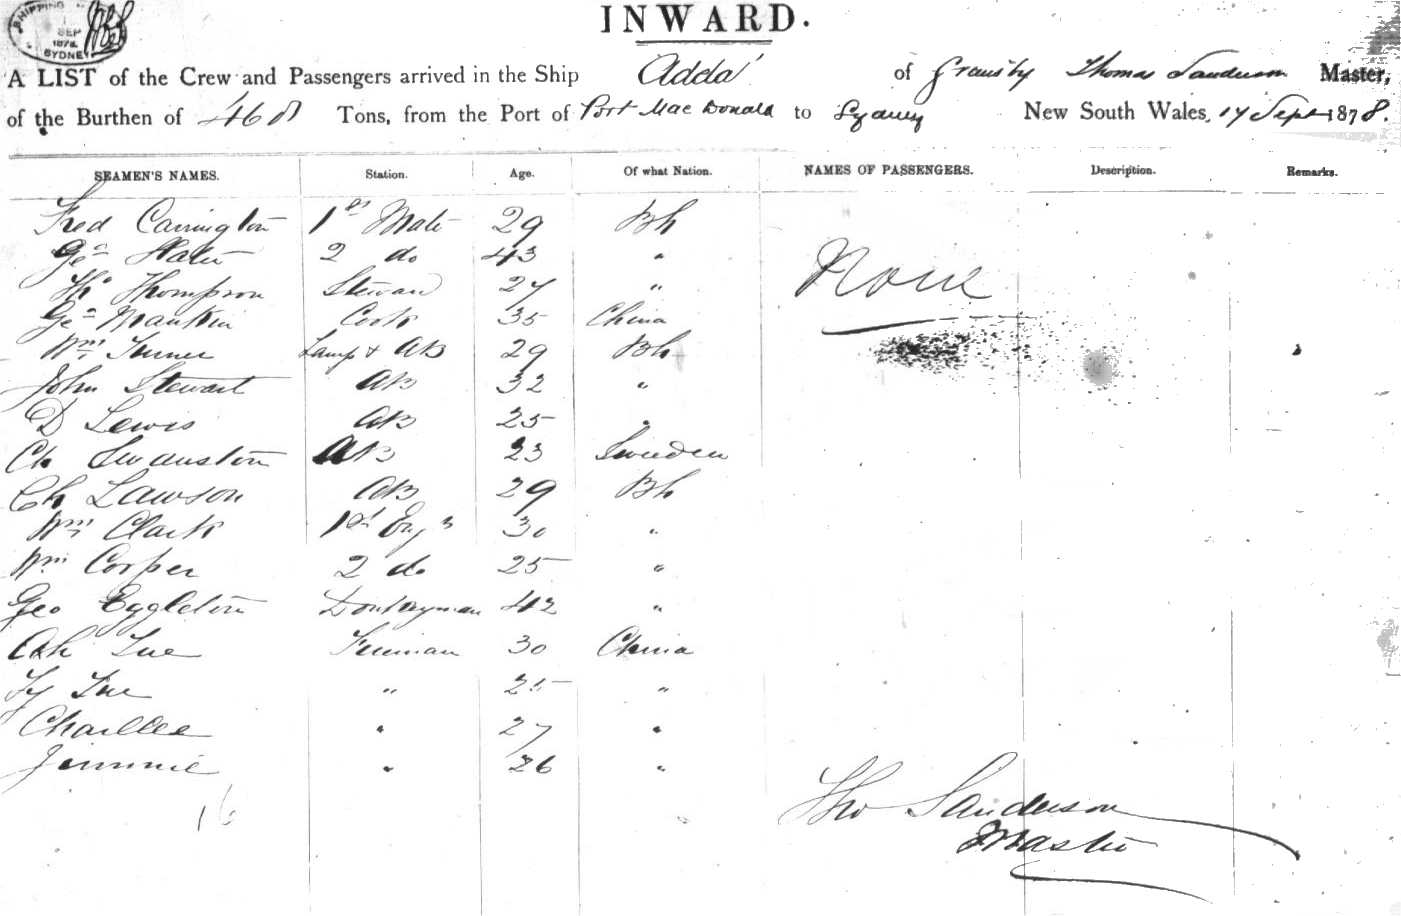 SHIPPING
SEP
1878
SYDNEY
INWARD.
A LIST of the Crew and Passengers arrived in the Ship Adda of Thomas Sanderson Master,
of the Burthen of 468 Tons, from the Port of Port Mac Donald to Sydney New South Wales, 17 Sept 1878.
SEAMEN'S NAMES. Station. Age. Of what Nation. NAMES OF PASSENGERS. Description. Remarks.
Fred Carrington 1st Mate 29 Bh
Geo Slater 2 do 43 "
Tho Thompson Steward 27 " None
Geo Mankin Cook 35 China
Wm Turner Lamp & AB 29 Bh
John Stewart AB 32 "
D Lewis AB 25 "
Ch Swanston AB 23 Sweden
Ch Lawson AB 29 Bh
Wm Clark 1st Engr 30 "
Wm Cooper 2 do 25 "
Geo Eggleton Donkeyman 42 "
Ah Sue Fireman 30 China
Sue " 25 "
Charllee " 27 "
Jimmie " 26 "
16
Tho Sanderson
Master